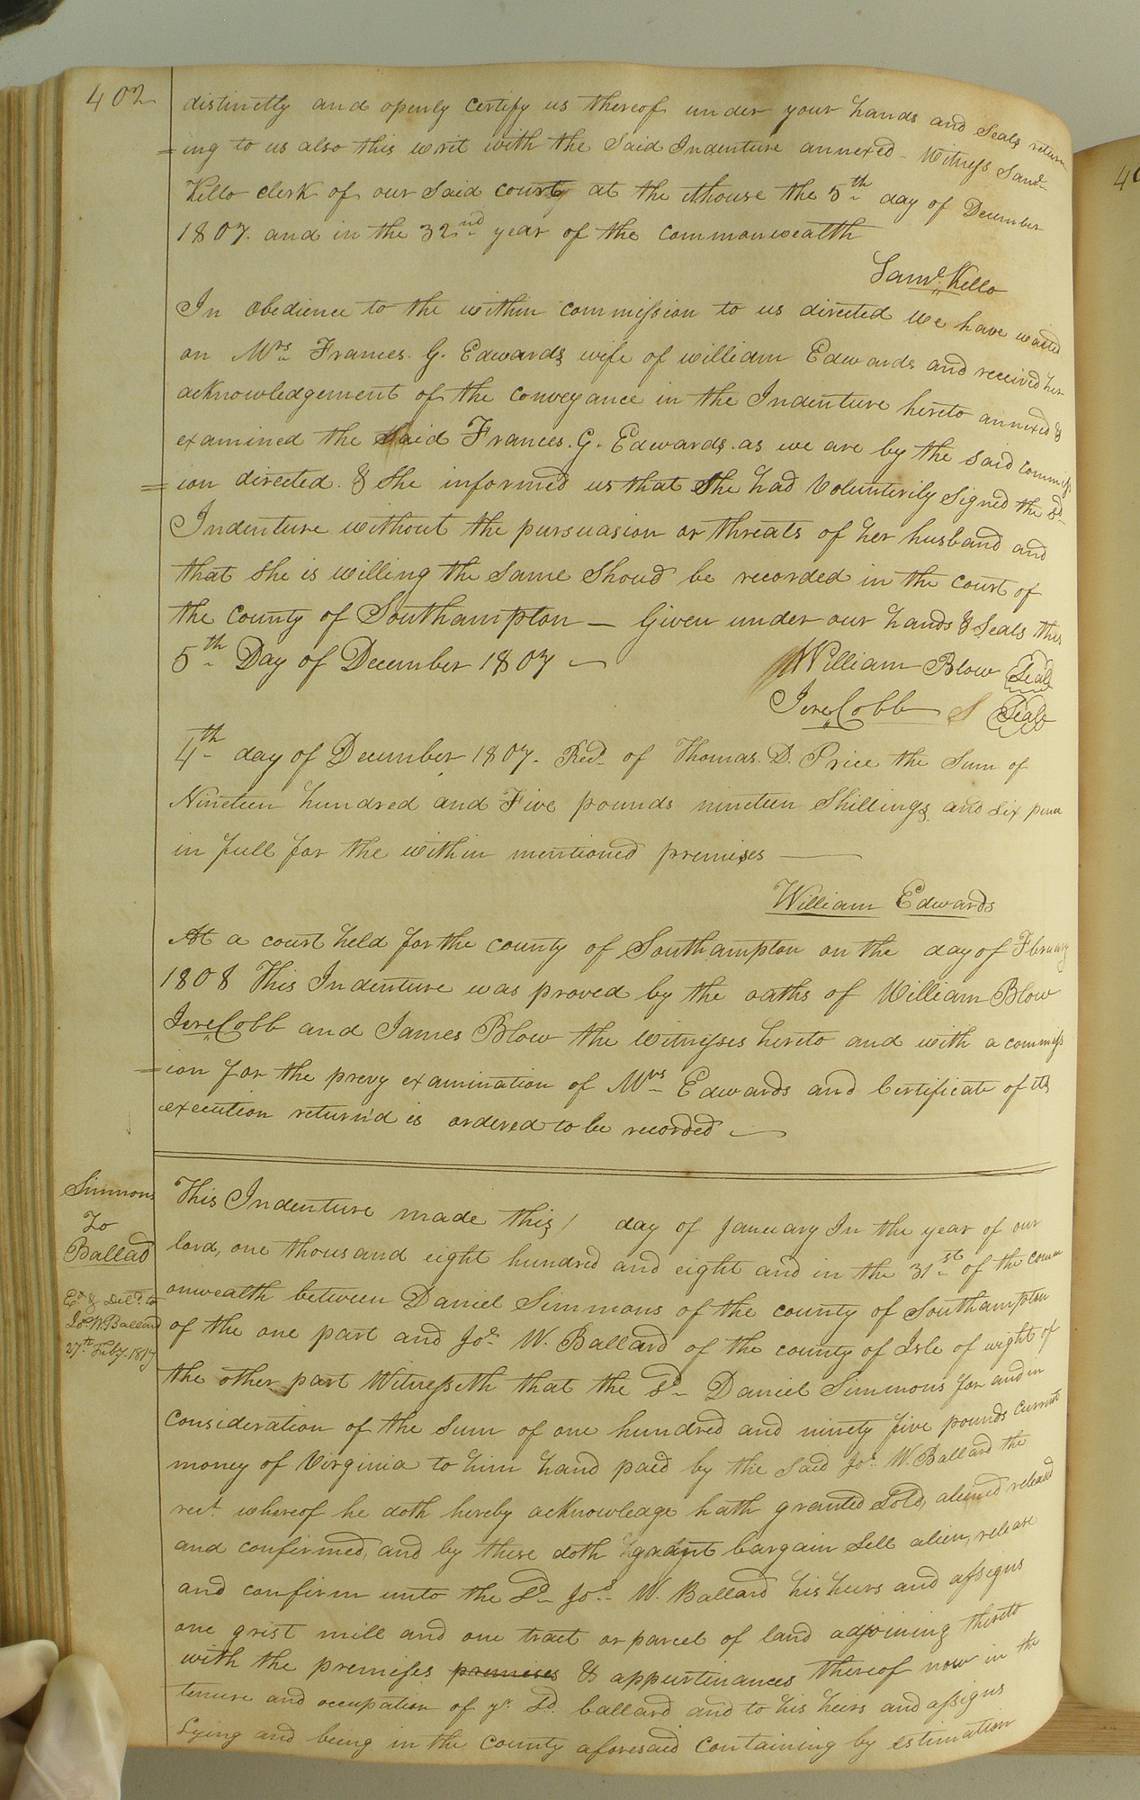 402
distinctly and openly certify us thereof under your hands and Seals return
=ing to us also this writ with the Said Indenture annexed - Witness Saml
Kello clerk of our Said court at the cthouse the 5th day of December
1807. and in the 32nd year of the commonwealth
Saml. Kello
In obedience to the within commission to us directed We have waited
on Mrs Frances. G. Edwards wife of william Edwards and received her
acknowledgement of the conveyance in the Indenture hereto annexed &
examined the Said Frances. G. Edwards. as we are by the said commiss
=ion directed. & She informed us that She had Volunterily Signed the sd
Indenture without the pursuasion or threats of her husband and
that she is willing the Same Shoud be recorded in the court of
the county of Southampton — Given under our hands & Seals this
5th Day of December 1807 —
William Blow Seal
Jere Cobb S Seal
4th day of December 1807. Recd of Thomas. D. Price the Sum of
Nineteen hundred and Five pounds nineteen Shillings and Six pence
in full for the within mentioned premises —
William Edwards
At a court held for the county of Southampton on the day of Fbruary
1808 This Indenture was proved by the oaths of William Blow
Jere Cobb and James Blow the witnesses hereto and with a commiss
=ion for the prevy examination of Mrs Edwards and Certificate of its
execution return'd is ordered to be recorded —
Simmons
To
Ballad
Ed & Deld. to
Jos. W Ballard
27th Feby. 1817
This Indenture made this 1 day of January In the year of our
lord, one thousand eight hundred and eight and in the 31st of the comm
onwealth between Daniel Simmons of the county of Southampton
of the one part and Jos. W. Ballard of the county of Isle of wight of
the other part Witnesseth that the sd Daniel Simmons for and in
consideration of the Sum of one hundred and ninety five pounds current
money of Virginia to him hand paid by the Said Jos. W. Ballard the
rect. whereof he doth hereby acknowledge hath granted Sold, aliened released
and confirmed, and by these doth grant bargain Sell alien, release
and confirm unto the Sd Jos. W. Ballard his heirs and assigns
one grist mill and one tract or parcel of land adjoining thereto
with the premises premises & appurtinances thereof now in the
tenure and occupation of ye. Sd. ballard and to his heirs and assigns
Lying and being in the County aforesaid Containing by estimation